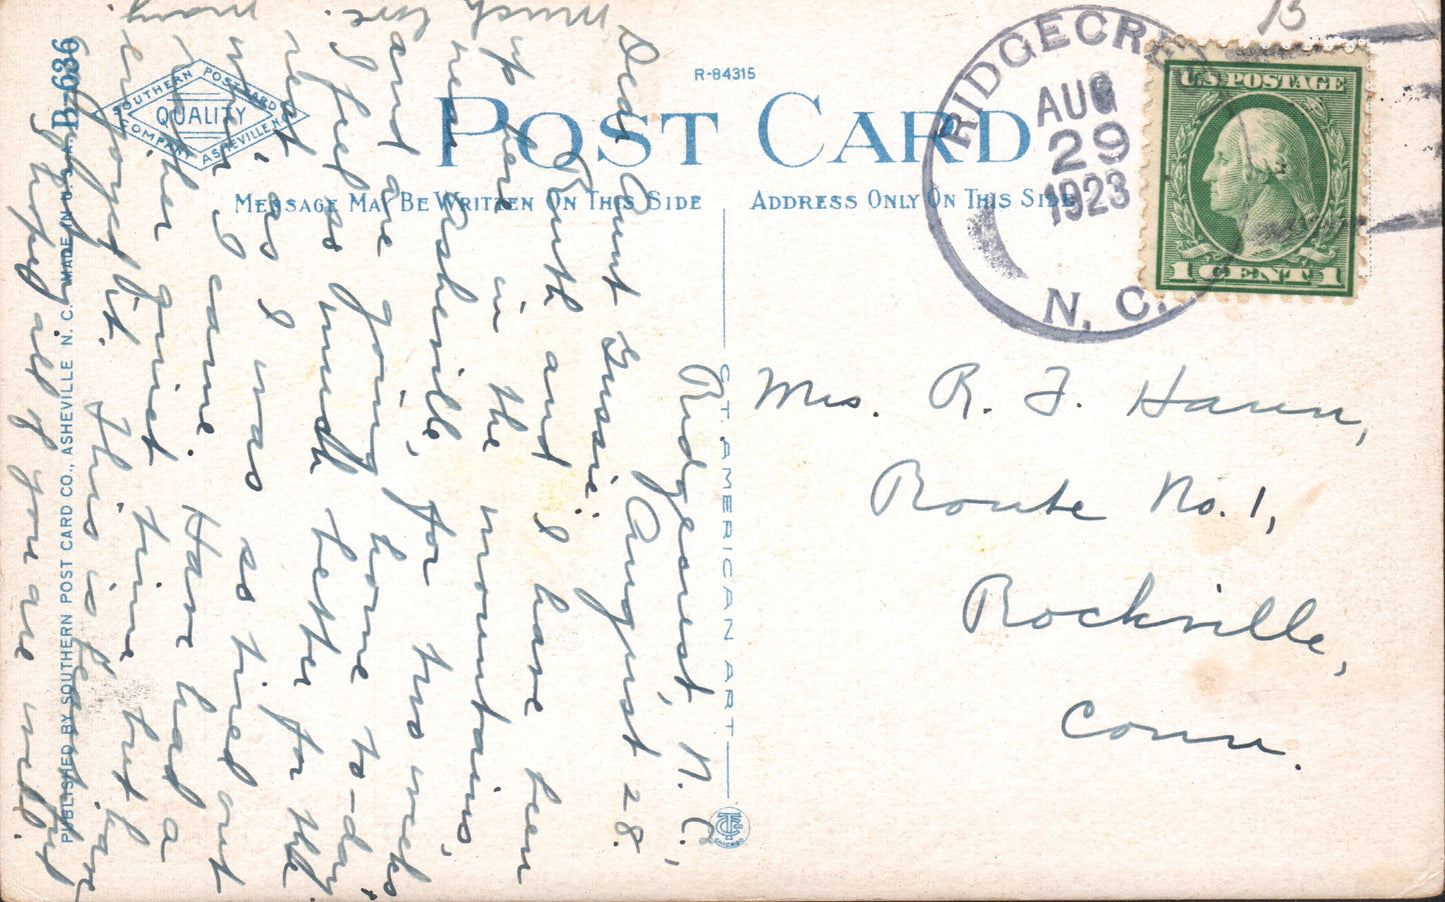 B-686
R-84315
POST CARD
SOUTHERN POSTCARD
QUALITY
COMPANY ASHEVILLE N.C.
MESSAGE MAY BE WRITTEN ON THIS SIDE
ADDRESS ONLY ON THIS SIDE
RIDGECREST
AUG
29
1923
N. C.
U.S. POSTAGE
1 CENT 1
13
Ridgecrest, N. C.,
August 28.
Dear Aunt Gussie:
Ruth and I have been
up here in the mountains,
near Asheville, for two weeks
and are going home to-day.
I feel so much better for the
rest, as I was so tired out
when I came. Have had a
rather quiet time but have
enjoyed it. This is beautiful.
Hope all of you are well.
Much love.
Mary.
Mrs. R. F. Hann,
Route No. 1,
Rockville,
Conn.
C.T. AMERICAN ART
CHICAGO
PUBLISHED BY SOUTHERN POST CARD CO., ASHEVILLE N. C. MADE IN U.S.A.